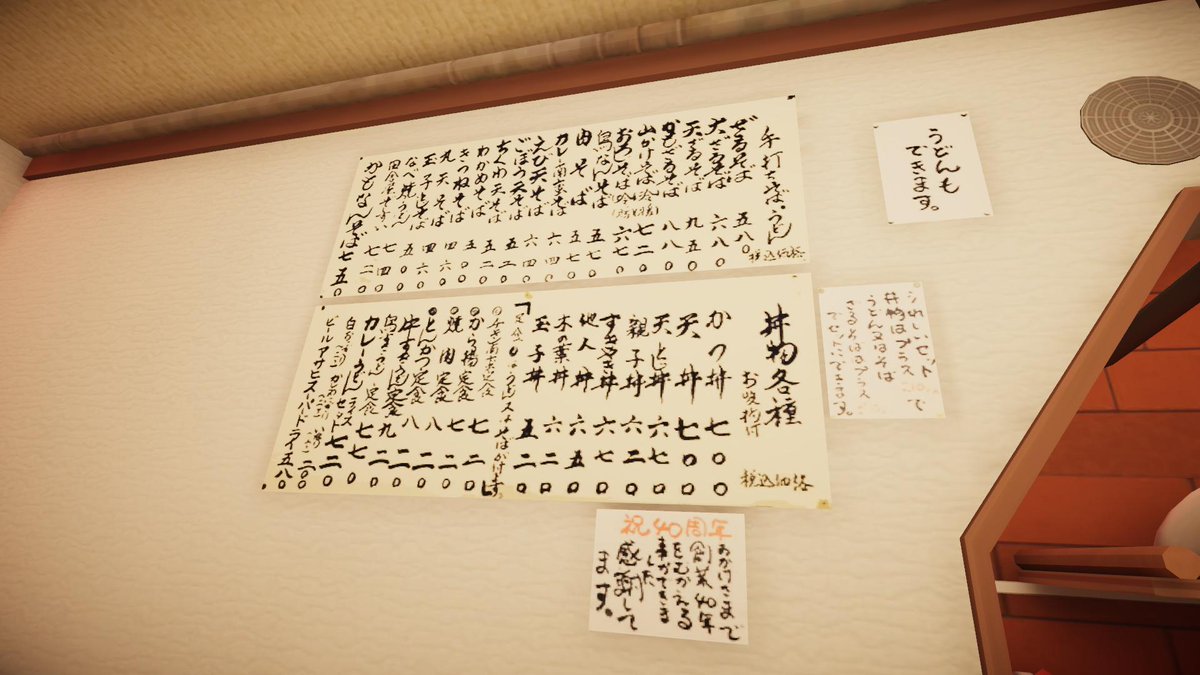 手打ちそば・うどん
税込価格
ざるそば 五八〇
大ざるそば 六八〇
天ざるそば 九五〇
かもざるそば 八八〇
山かけそば(冷熱) 七二〇
おろしそば 六七〇
鳥なんそば 五七〇
肉そば 五七〇
カレー南ばそば 六四〇
えび天そば 六四〇
ごぼう天そば 五二〇
ちくわ天そば 五二〇
わかめそば
きつねそば
丸天そば 四六〇
玉子とじそば
なべ焼うどん
かもなんそば 七五〇
うどんも
できます。
丼物各種
お吸物付
税込価格
かつ丼 七〇〇
天丼 七〇〇
天とじ丼 六七〇
親子丼 六二〇
すきやき丼 六七〇
他人丼 六五〇
木の葉丼 六二〇
玉子丼 五二〇
「定食にはうどん又はそばが付ます」
から揚定食 七二〇
焼肉定食 七二〇
とんかつ定食 八二〇
牛すきうどん定食 八二〇
鳥すきうどん定食
カレーうどん定食 七
ビールアサヒスーパードライ 五八〇
うれしいセット
丼物はプラス で
うどん又はそば
ざるそばはプラス
でセットできます。
祝40周年
おかげさまで
創業40年
をむかえる
事ができま
した
感謝して
ます。